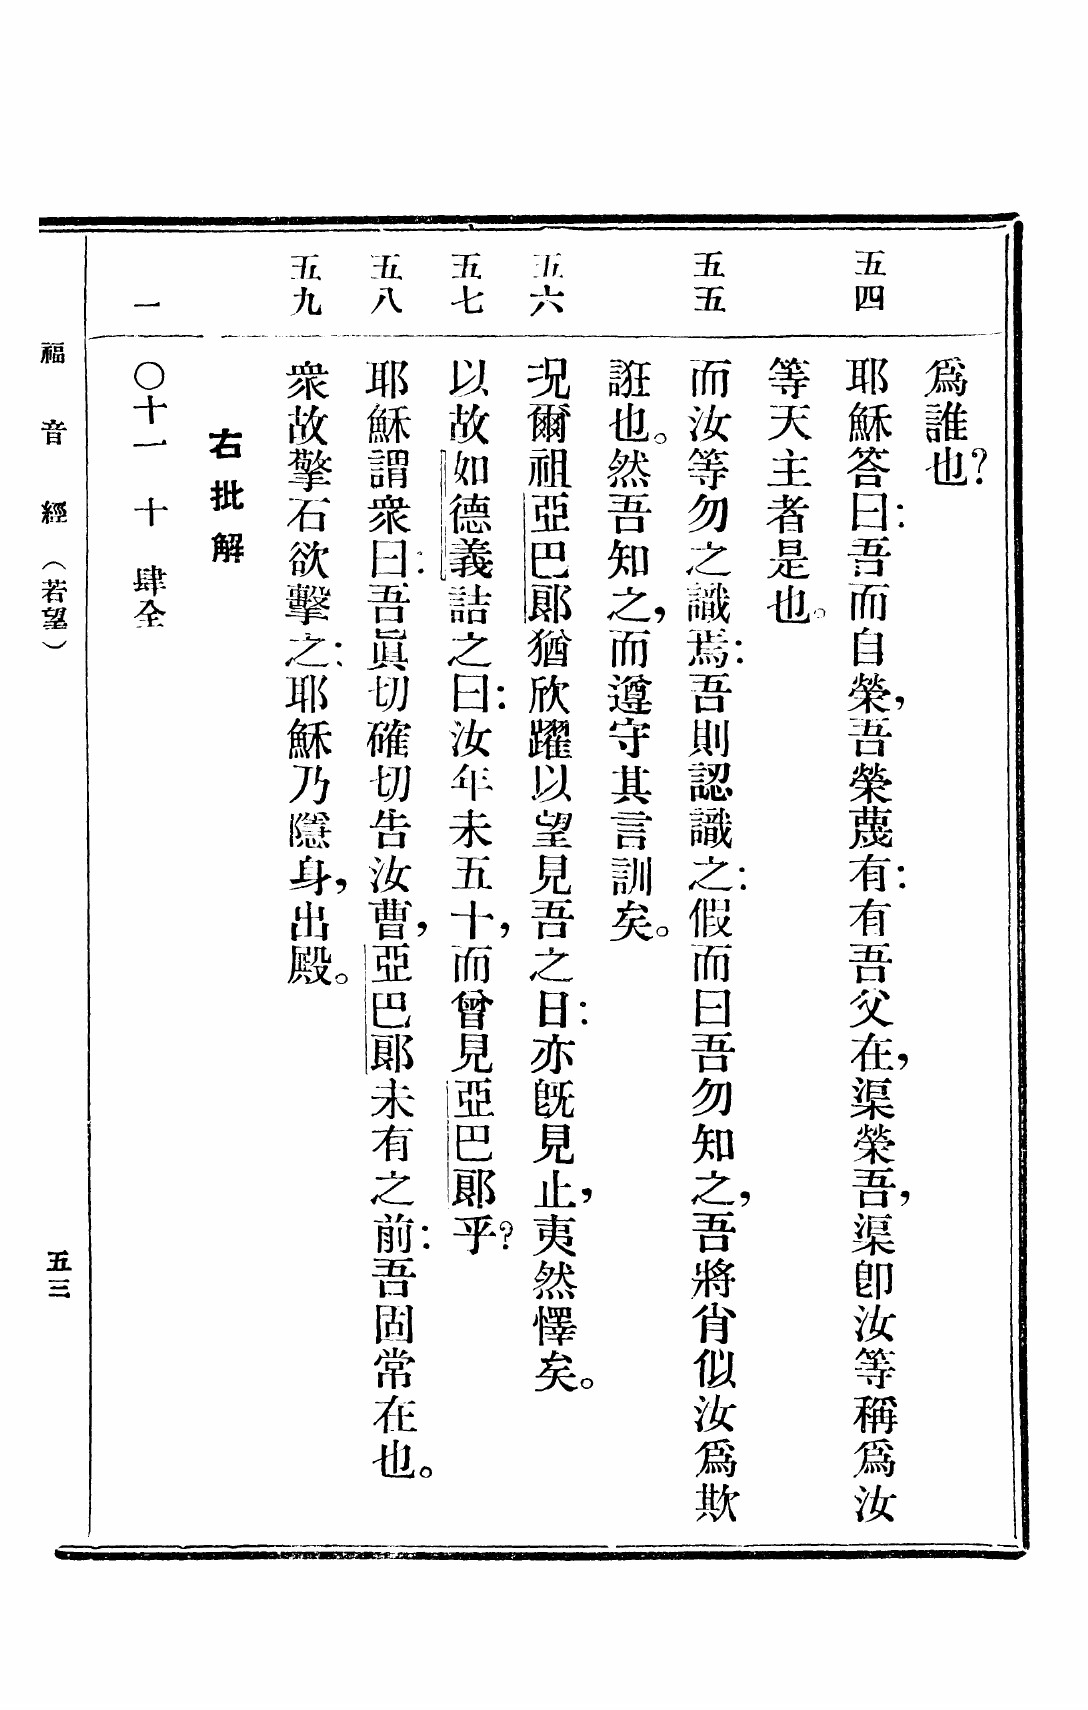 爲誰也?
五四 耶穌答曰:吾而自榮,吾榮蔑有:有吾父在,渠榮吾,渠卽汝等稱爲汝
等天主者是也。
五五 而汝等勿之識焉:吾則認識之:假而曰吾勿知之,吾將肖似汝爲欺
誑也。然吾知之,而遵守其言訓矣。
五六 況爾祖亞巴郞猶欣躍以望見吾之日:亦旣見止,夷然懌矣。
五七 以故如德義詰之曰:汝年未五十,而曾見亞巴郞乎?
五八 耶穌謂衆曰:吾眞切確切告汝曹,亞巴郞未有之前:吾固常在也。
五九 衆故擎石欲擊之:耶穌乃隱身,出殿。
右批解
一 〇十一 十 肆全
福音經(若望) 五三